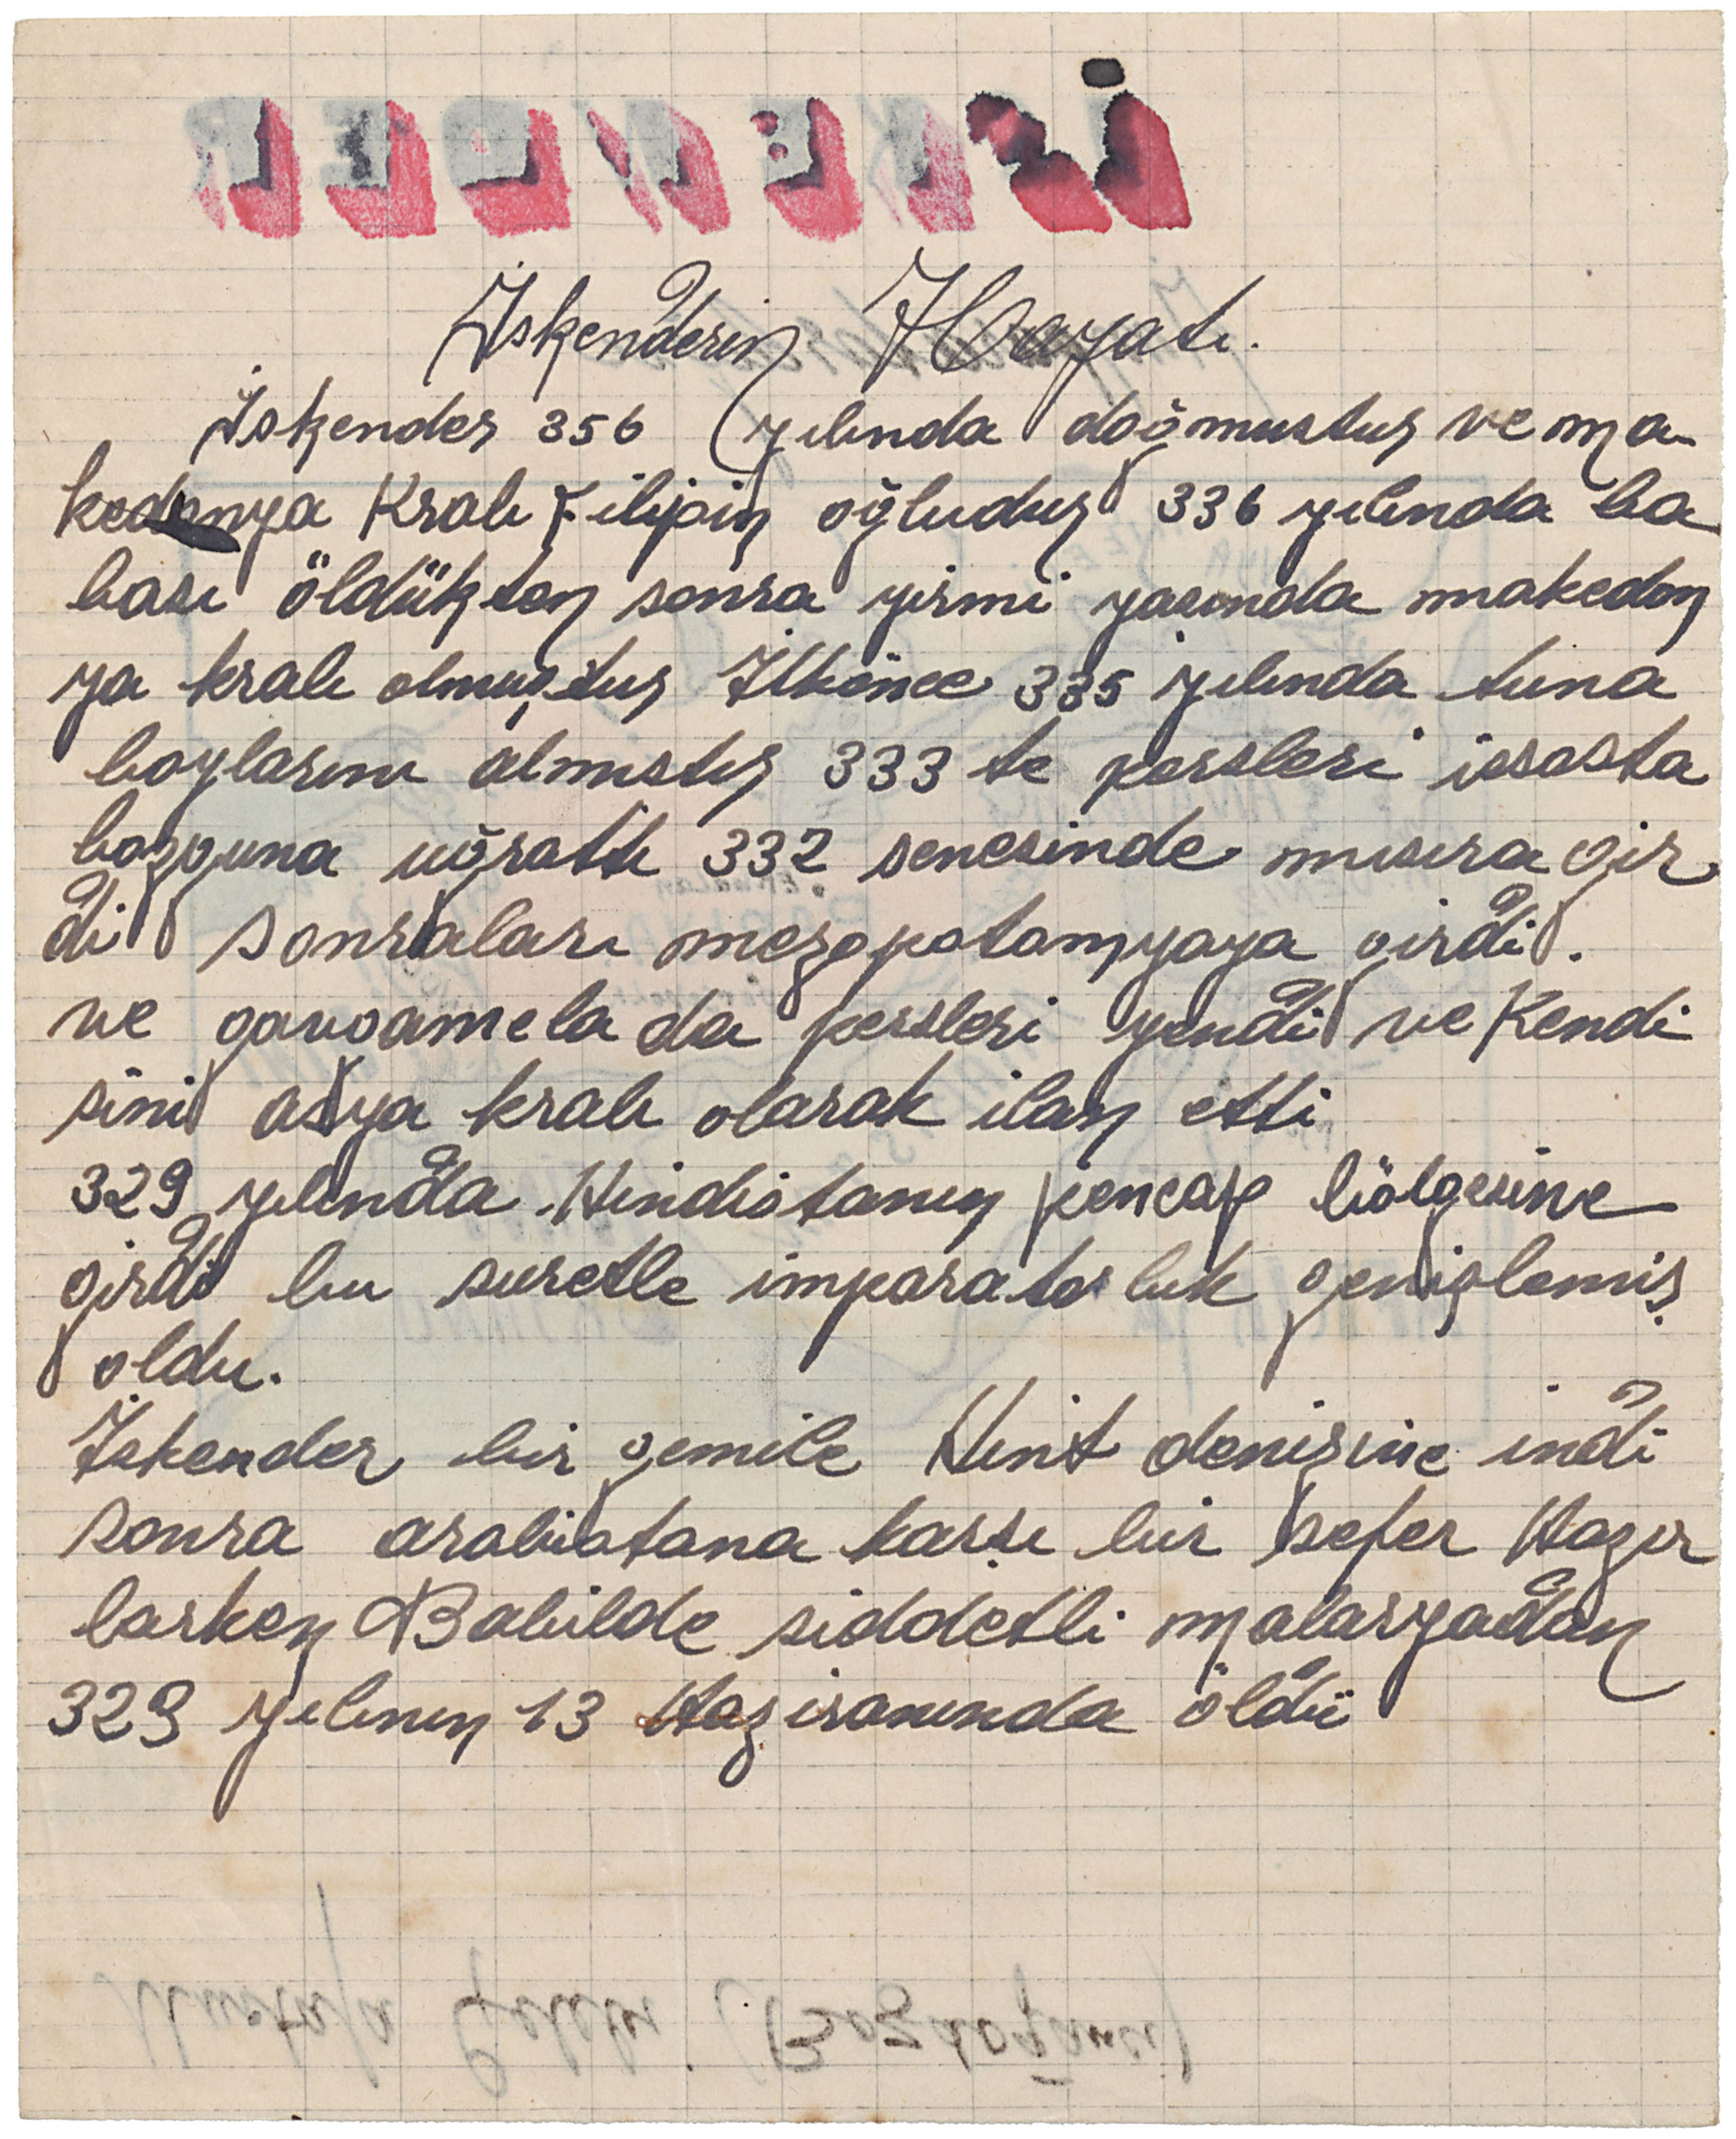 İSKENDER
İskenderin Hayatı.
İskender 356 yılında doğmustur ve ma-
kedonya Kralı Filipin oğludur 336 yılında ba
bası öldükten sonra yirmi yasında makedon
ya kralı olmuştur İlkönce 335 yılında tuna
boylarını almıstır 333 te persleri issosta
bozguna uğrattı 332 senesinde mısıra gir
di sonraları mezopotamyaya girdi.
ve gavgamela da persleri yendi ve Kendi
sini asya kralı olarak ilan etti
329 yılında Hindistanın pencap bölgesine
girdi bu suretle imparatorluk genişlemiş
oldu.
İskender bir gemile Hint denizine indi
sonra arabistana karşı bir sefer Hazır
larken Babilde siddetli malaryadan
323 yılının 13 Haziranında öldü
Mustafa (Bozdoğanı)